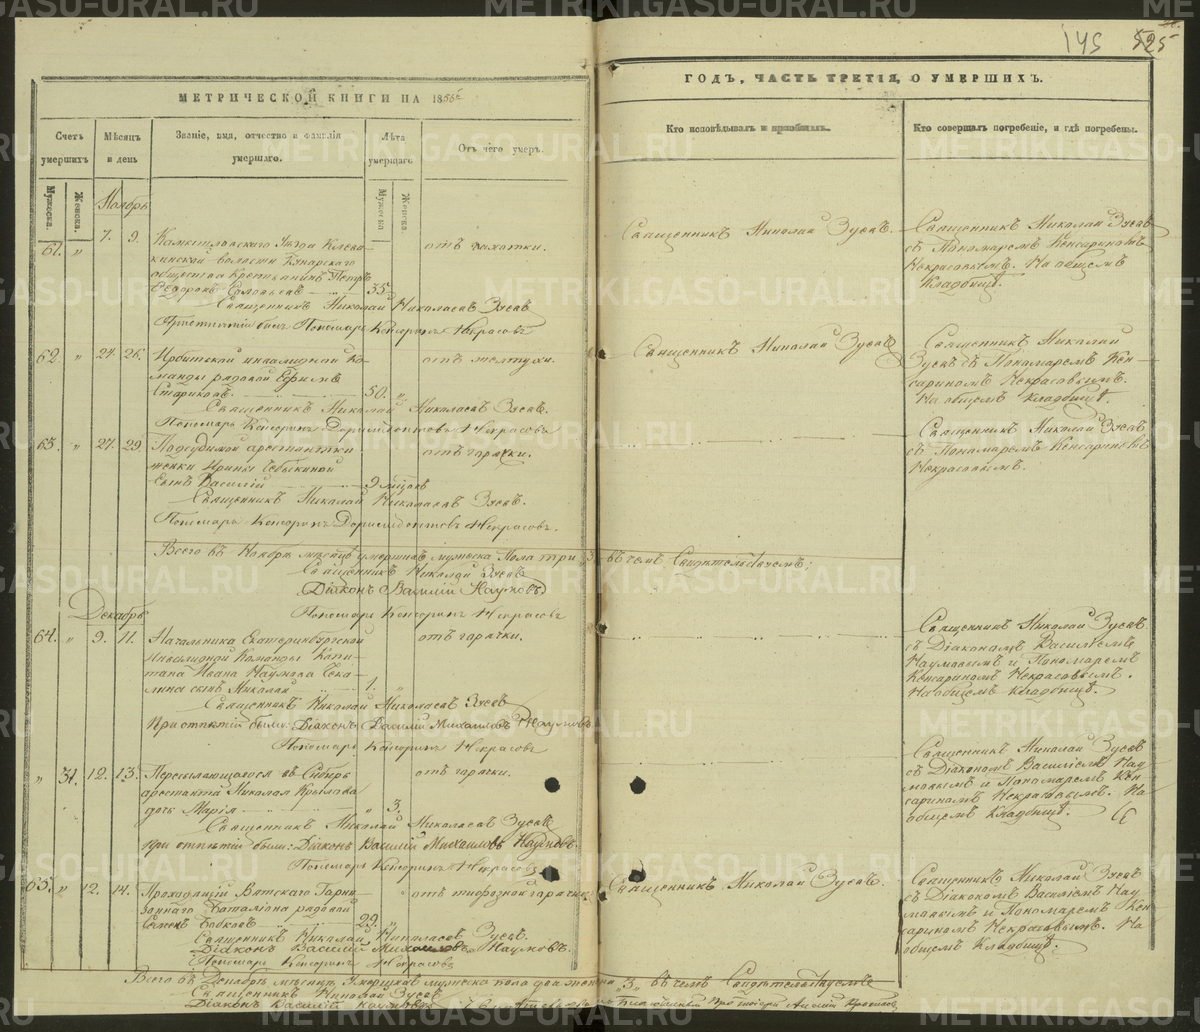 145 525
МЕТРИЧЕСКОЙ КНИГИ НА 1856
ГОДЪ, ЧАСТЬ ТРЕТІЯ, О УМЕРШИХЪ.
Счетъ умершихъ
Мужеска.
Женска.
Мѣсяцъ и день
Званіе, имя, отчество и фамилія умершаго.
Лѣта умершаго
Мужеска
Женска
Отъ чего умеръ.
Кто исповѣдывалъ и пріобщалъ.
Кто совершалъ погребеніе, и гдѣ погребены.
Ноябрь
61. " 7. 9.
Камышловскаго Уѣзда
волости
общества Крестьянинъ Петръ
Ѳедоровъ Соловьевъ 35
отъ чахотки.
Священникъ Николай Николаевъ Зуевъ
Пономарь Кенсоринъ Некрасовъ
Священникъ Николай Зуевъ.
Священникъ Николай Зуевъ
съ Пономаремъ Кенсориномъ
Некрасовымъ. На общемъ
Кладбищѣ.
62. " 24. 26.
Ирбитской инвалидной ко-
манды рядовой Ефимъ
Стариковъ 50. "
отъ желтухи.
Священникъ Николай Николаевъ Зуевъ.
Пономарь Кенсоринъ Доримедонтовъ Некрасовъ
Священникъ Николай Зуевъ
Священникъ Николай
Зуевъ съ Пономаремъ Кен-
сориномъ Некрасовымъ.
На общемъ Кладбищѣ.
63. " 27. 29.
Подсудимой арестантки
женки Ирины
сынъ Василій 9 мѣсяцовъ
отъ горячки.
Священникъ Николай Николаевъ Зуевъ.
Пономарь Кенсоринъ Доримедонтовъ Некрасовъ.
Священникъ Николай Зуевъ
съ Пономаремъ Кенсориномъ
Некрасовымъ.
Всего въ Ноябрѣ мѣсяцѣ умершихъ мужеска пола три "3" въ чемъ Свидѣтельствуемъ:
Священникъ Николай Зуевъ
Діаконъ Василій Наумовъ
Пономарь Кенсоринъ Некрасовъ
Декабрь
64. " 9. 11.
Начальника Екатеринбургской
Инвалидной Команды Капи-
тана Ивана Наумова
сынъ Николай 1. "
отъ горячки.
Священникъ Николай Николаевъ Зуевъ
При отпѣтіи были: Діаконъ Василій Михайловъ Наумовъ
Пономарь Кенсоринъ Некрасовъ
Священникъ Николай Зуевъ
съ Діакономъ Василіемъ
Наумовымъ и Пономаремъ
Кенсориномъ Некрасовымъ.
На общемъ Кладбищѣ.
" 31. 12. 13.
Пересылающагося въ Сибирь
арестанта Николая Крылова
дочь Марія " 3.
отъ горячки.
Священникъ Николай Николаевъ Зуевъ
При отпѣтіи были: Діаконъ Василій Михайловъ Наумовъ.
Пономарь Кенсоринъ Некрасовъ
Священникъ Николай Зуевъ
съ Діакономъ Василіемъ Нау-
мовымъ и Пономаремъ Кен-
сориномъ Некрасовымъ. На
общемъ Кладбищѣ.
65. " 12. 14.
Проходящій Вятскаго Гарни-
зоннаго Баталіона рядовой
Семенъ Бобковъ 29. "
отъ тифозной горячки.
Священникъ Николай Николаевъ Зуевъ.
Діаконъ Василій Михайловъ Наумовъ.
Пономарь Кенсоринъ Некрасовъ
Священникъ Николай Зуевъ.
Священникъ Николай Зуевъ
съ Діакономъ Василіемъ Нау-
мовымъ и Пономаремъ Кен-
сориномъ Некрасовымъ. На
общемъ Кладбищѣ.
Всего въ Декабрѣ мѣсяцѣ умершихъ мужеска пола два "3" въ чемъ Свидѣтельствуемъ
Священникъ Николай Зуевъ
Діаконъ Василій Наумовъ
METRIKI.GASO-URAL.RU